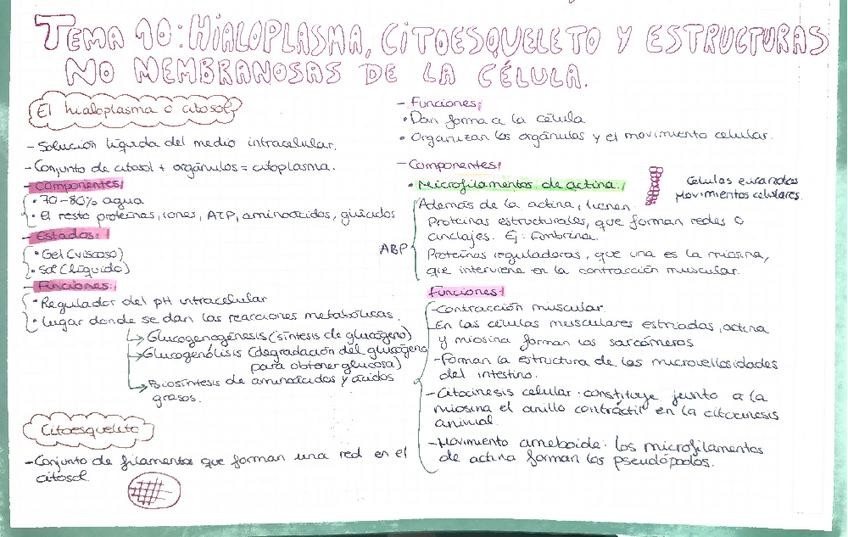 TEMA 10: HIALOPLASMA, CITOESQUELETO Y ESTRUCTURAS
NO MEMBRANOSAS DE LA CÉLULA.
El hialoplasma o citosol
- Solución líquida del medio intracelular.
- Conjunto de citosol + orgánulos = citoplasma.
- Componentes:
• 70-80% agua
• El resto proteínas, iones, ATP, aminoácidos, glúcidos
- Estados:
• Gel (viscoso)
• Sol (líquido)
- Funciones:
• Regulador del pH intracelular
• Lugar donde se dan las reacciones metabólicas.
Glucogenogénesis (síntesis de glucógeno)
Glucogenólisis (degradación del glucógeno
para obtener glucosa)
Biosíntesis de aminoácidos y ácidos
grasos.
Citoesqueleto
- Conjunto de filamentos que forman una red en el
citosol.
- Funciones:
• Dan forma a la célula
• Organizan los orgánulos y el movimiento celular.
- Componentes:
• Microfilamentos de actina:
Células eucariotas
Movimientos celulares.
Además de la actina, tienen
ABP
Proteínas estructurales, que forman redes o
anclajes. Ej: Fimbrina.
Proteínas reguladoras, que una es la miosina,
que interviene en la contracción muscular.
Funciones:
- Contracción muscular
En las células musculares estriadas, actina
y miosina forman los sarcómeros
- Forman la estructura de las microvellosidades
del intestino.
- Citocinesis celular: constituye junto a la
miosina el anillo contráctil en la citocinesis
animal.
- Movimiento ameboide: los microfilamentos
de actina forman los pseudópodos.